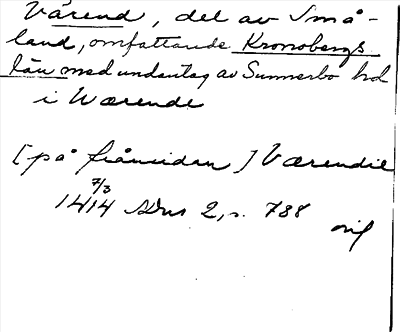 Värend, del av Små-
land, omfattande Kronobergs
län med undantag av Sunnerbo hd
i Wærende
[på frånsidan] Værendie
7/3
1414 SDns 2, s. 788
orig